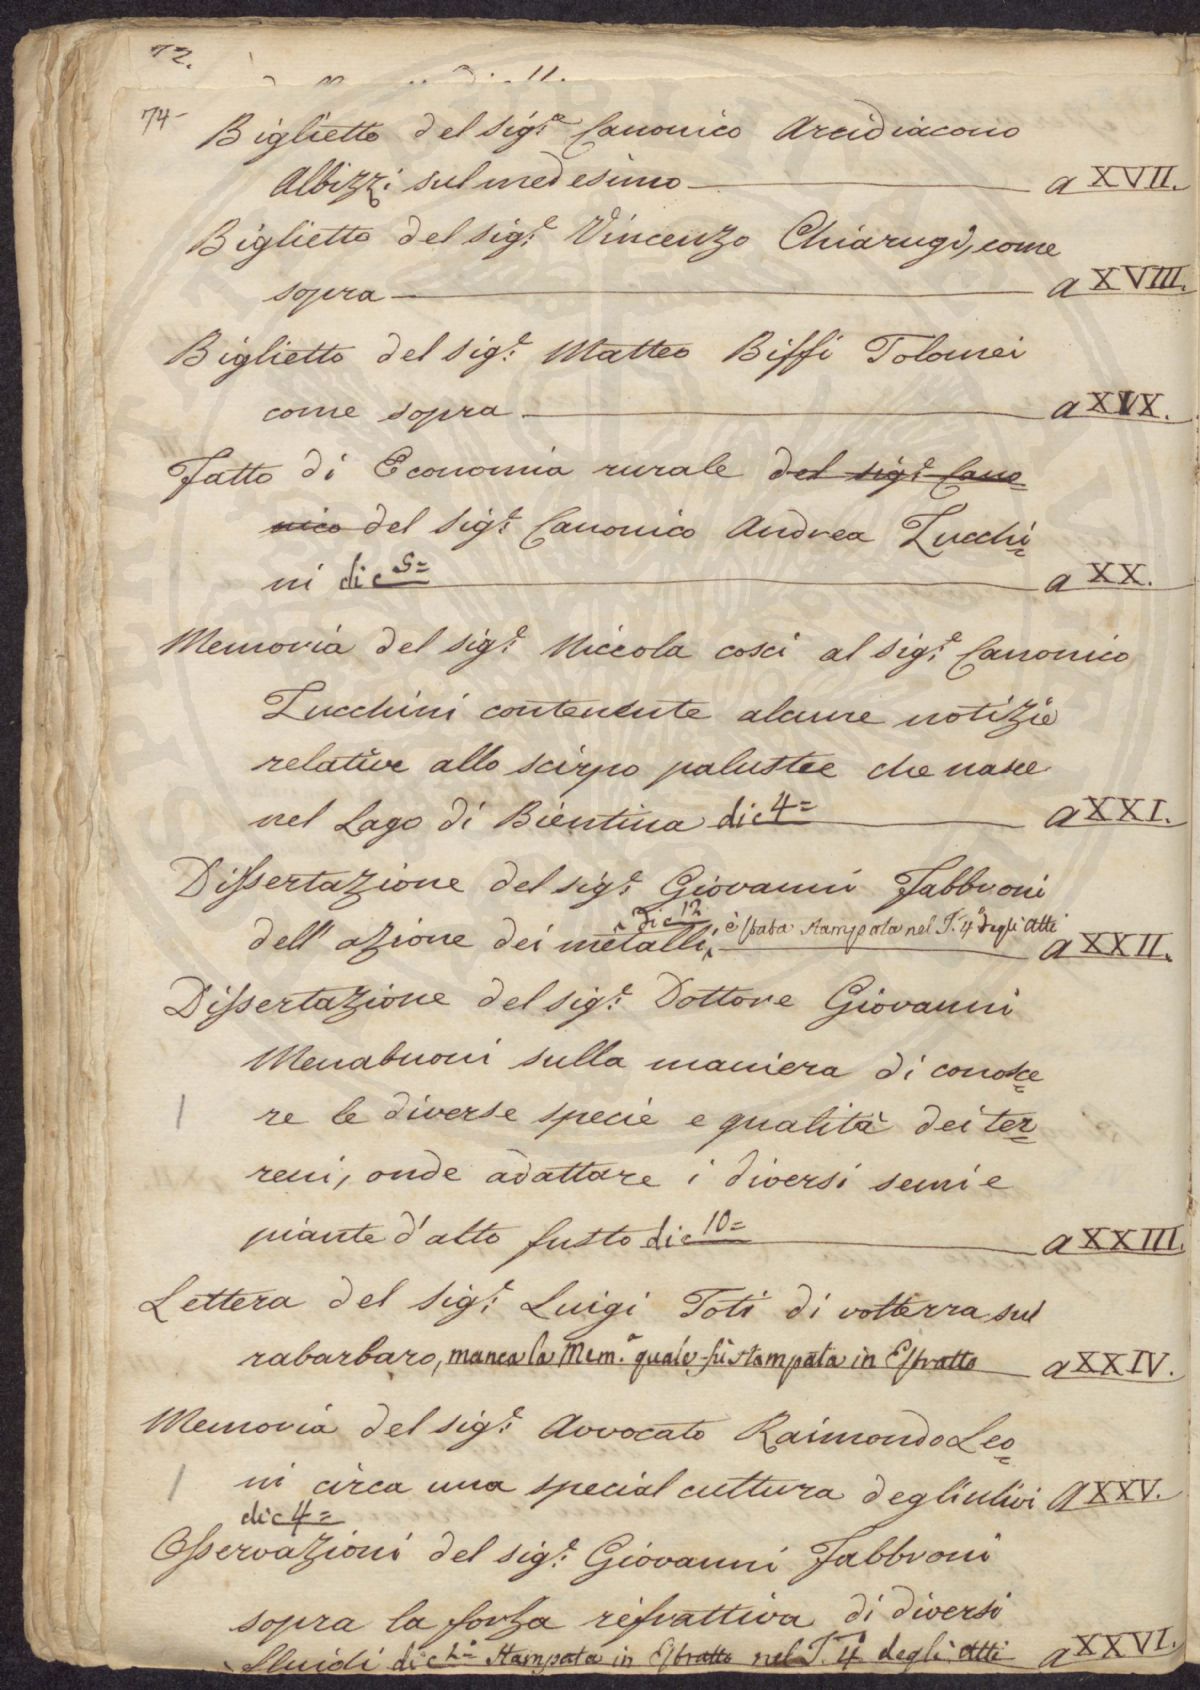 72.
11.
74
Biglietto del sig.e Canonico Arcidiacono
Albizzi sul medesimo a XVII.
Biglietto del sig.e Vincenzo Chiarugi, come
sopra a XVIII.
Biglietto del sig.e Matteo Biffi Tolomei
come sopra a XIX.
Fatto di Economia rurale del sig.e Cano=
nico del sig.e Canonico Andrea Zucchi=
ni di c 5= a XX.
Memoria del sig.e Niccola Cosci al sig.e Canonico
Zucchini contenente alcune notizie
relative allo scirpo palustre che nasce
nel Lago di Bientina di c 4= a XXI.
Dissertazione del sig.e Giovanni Fabbroni
di c 12 è stata stampata nel T. 4° degli Atti
dell' azione dei metalli, a XXII.
Dissertazione del sig.e Dottore Giovanni
Menabuoni sulla maniera di conosce=
re le diverse specie e qualità dei ter=
reni, onde adattare i diversi semi e
piante d'alto fusto di c 10= a XXIII.
Lettera del sig.e Luigi Toti di Volterra sul
rabarbaro, manca la Mem.a quale fù stampata in Estratto a XXIV.
Memoria del sig.e Avvocato Raimondo Leo=
ni circa una special cultura degli ulivi a XXV.
di c 4=
Osservazioni del sig.e Giovanni Fabbroni
sopra la forza refrattiva di diversi
fluidi di c Stampata in Estratto nel T. 4° degli Atti a XXVI.